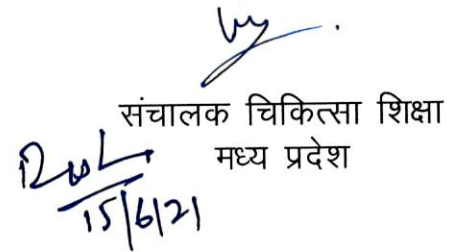 संचालक चिकित्सा शिक्षा
मध्य प्रदेश
15/6/21